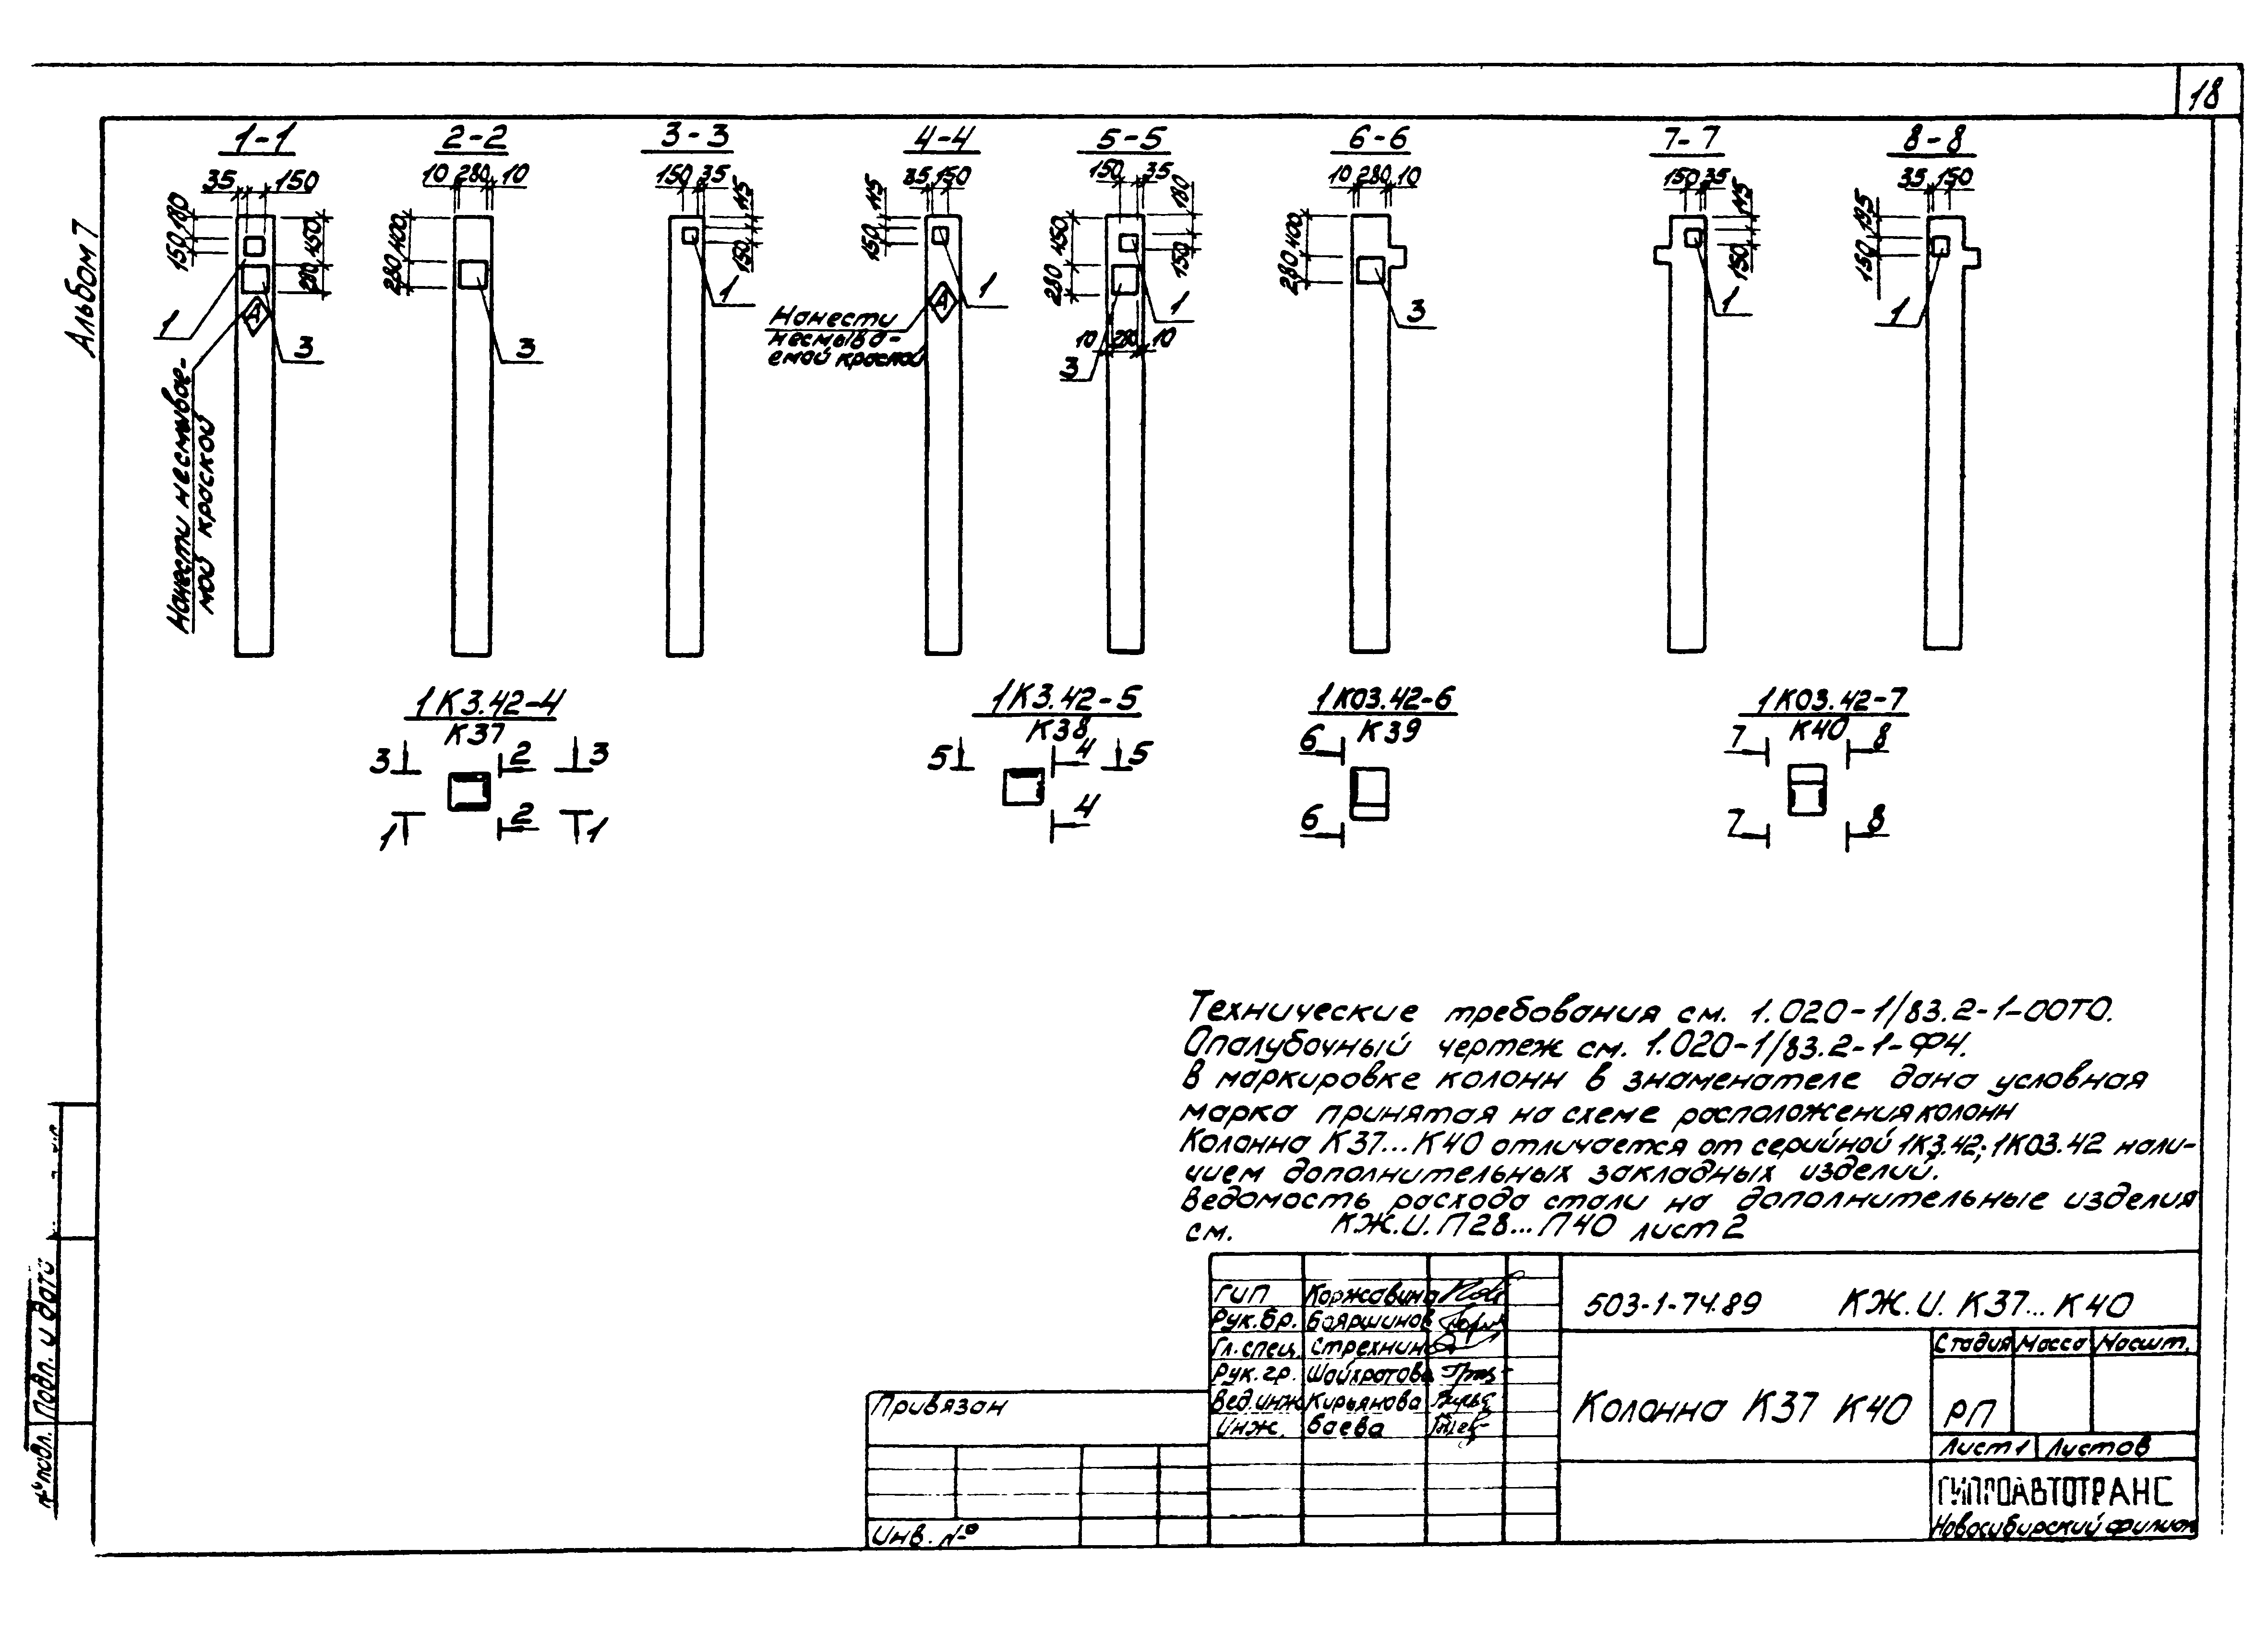 18
Альбом 7
1-1
35 150
180
150
450
280
1
3
А
Нанести несмывае-
мой краской
2-2
10 280 10
400
280
3
3-3
150 35
115
150
1
4-4
35 150
115
150
1
А
Нанести
несмыва-
емой краской
5-5
150 35
180
150
450
280
1
10 280 10
3
6-6
10 280 10
400
280
3
7-7
150 35
115
150
1
8-8
35 150
195
150
1
1К3.42-4
К37
3 2 3
1 2 1
1К3.42-5
К38
5 4 5
4
1К03.42-6
К39
6
6
1К03.42-7
К40
7 8
7 8
Технические требования см. 1.020-1/83.2-1-00ТО.
Опалубочный чертеж см. 1.020-1/83.2-1-Ф4.
В маркировке колонн в знаменателе дана условная
марка принятая на схеме расположения колонн
Колонна К37...К40 отличается от серийной 1К3.42; 1К03.42 нали-
чием дополнительных закладных изделий.
Ведомость расхода стали на дополнительные изделия
см. КЖ.И.П28...П40 лист 2
ГИП Коржавина
Рук.бр. Бояршинов
Гл.спец. Стрехнин
Рук.гр. Шайхратова
Вед.инж Кирьянова
Инж. Баева
503-1-74.89 КЖ.И. К37... К40
Колонна К37 К40
Стадия Масса Масшт.
РП
Лист 1 Листов
ГИПРОАВТОТРАНС
Новосибирский филиал
Привязан
Инв. №
Подп. и дата
№ подл.